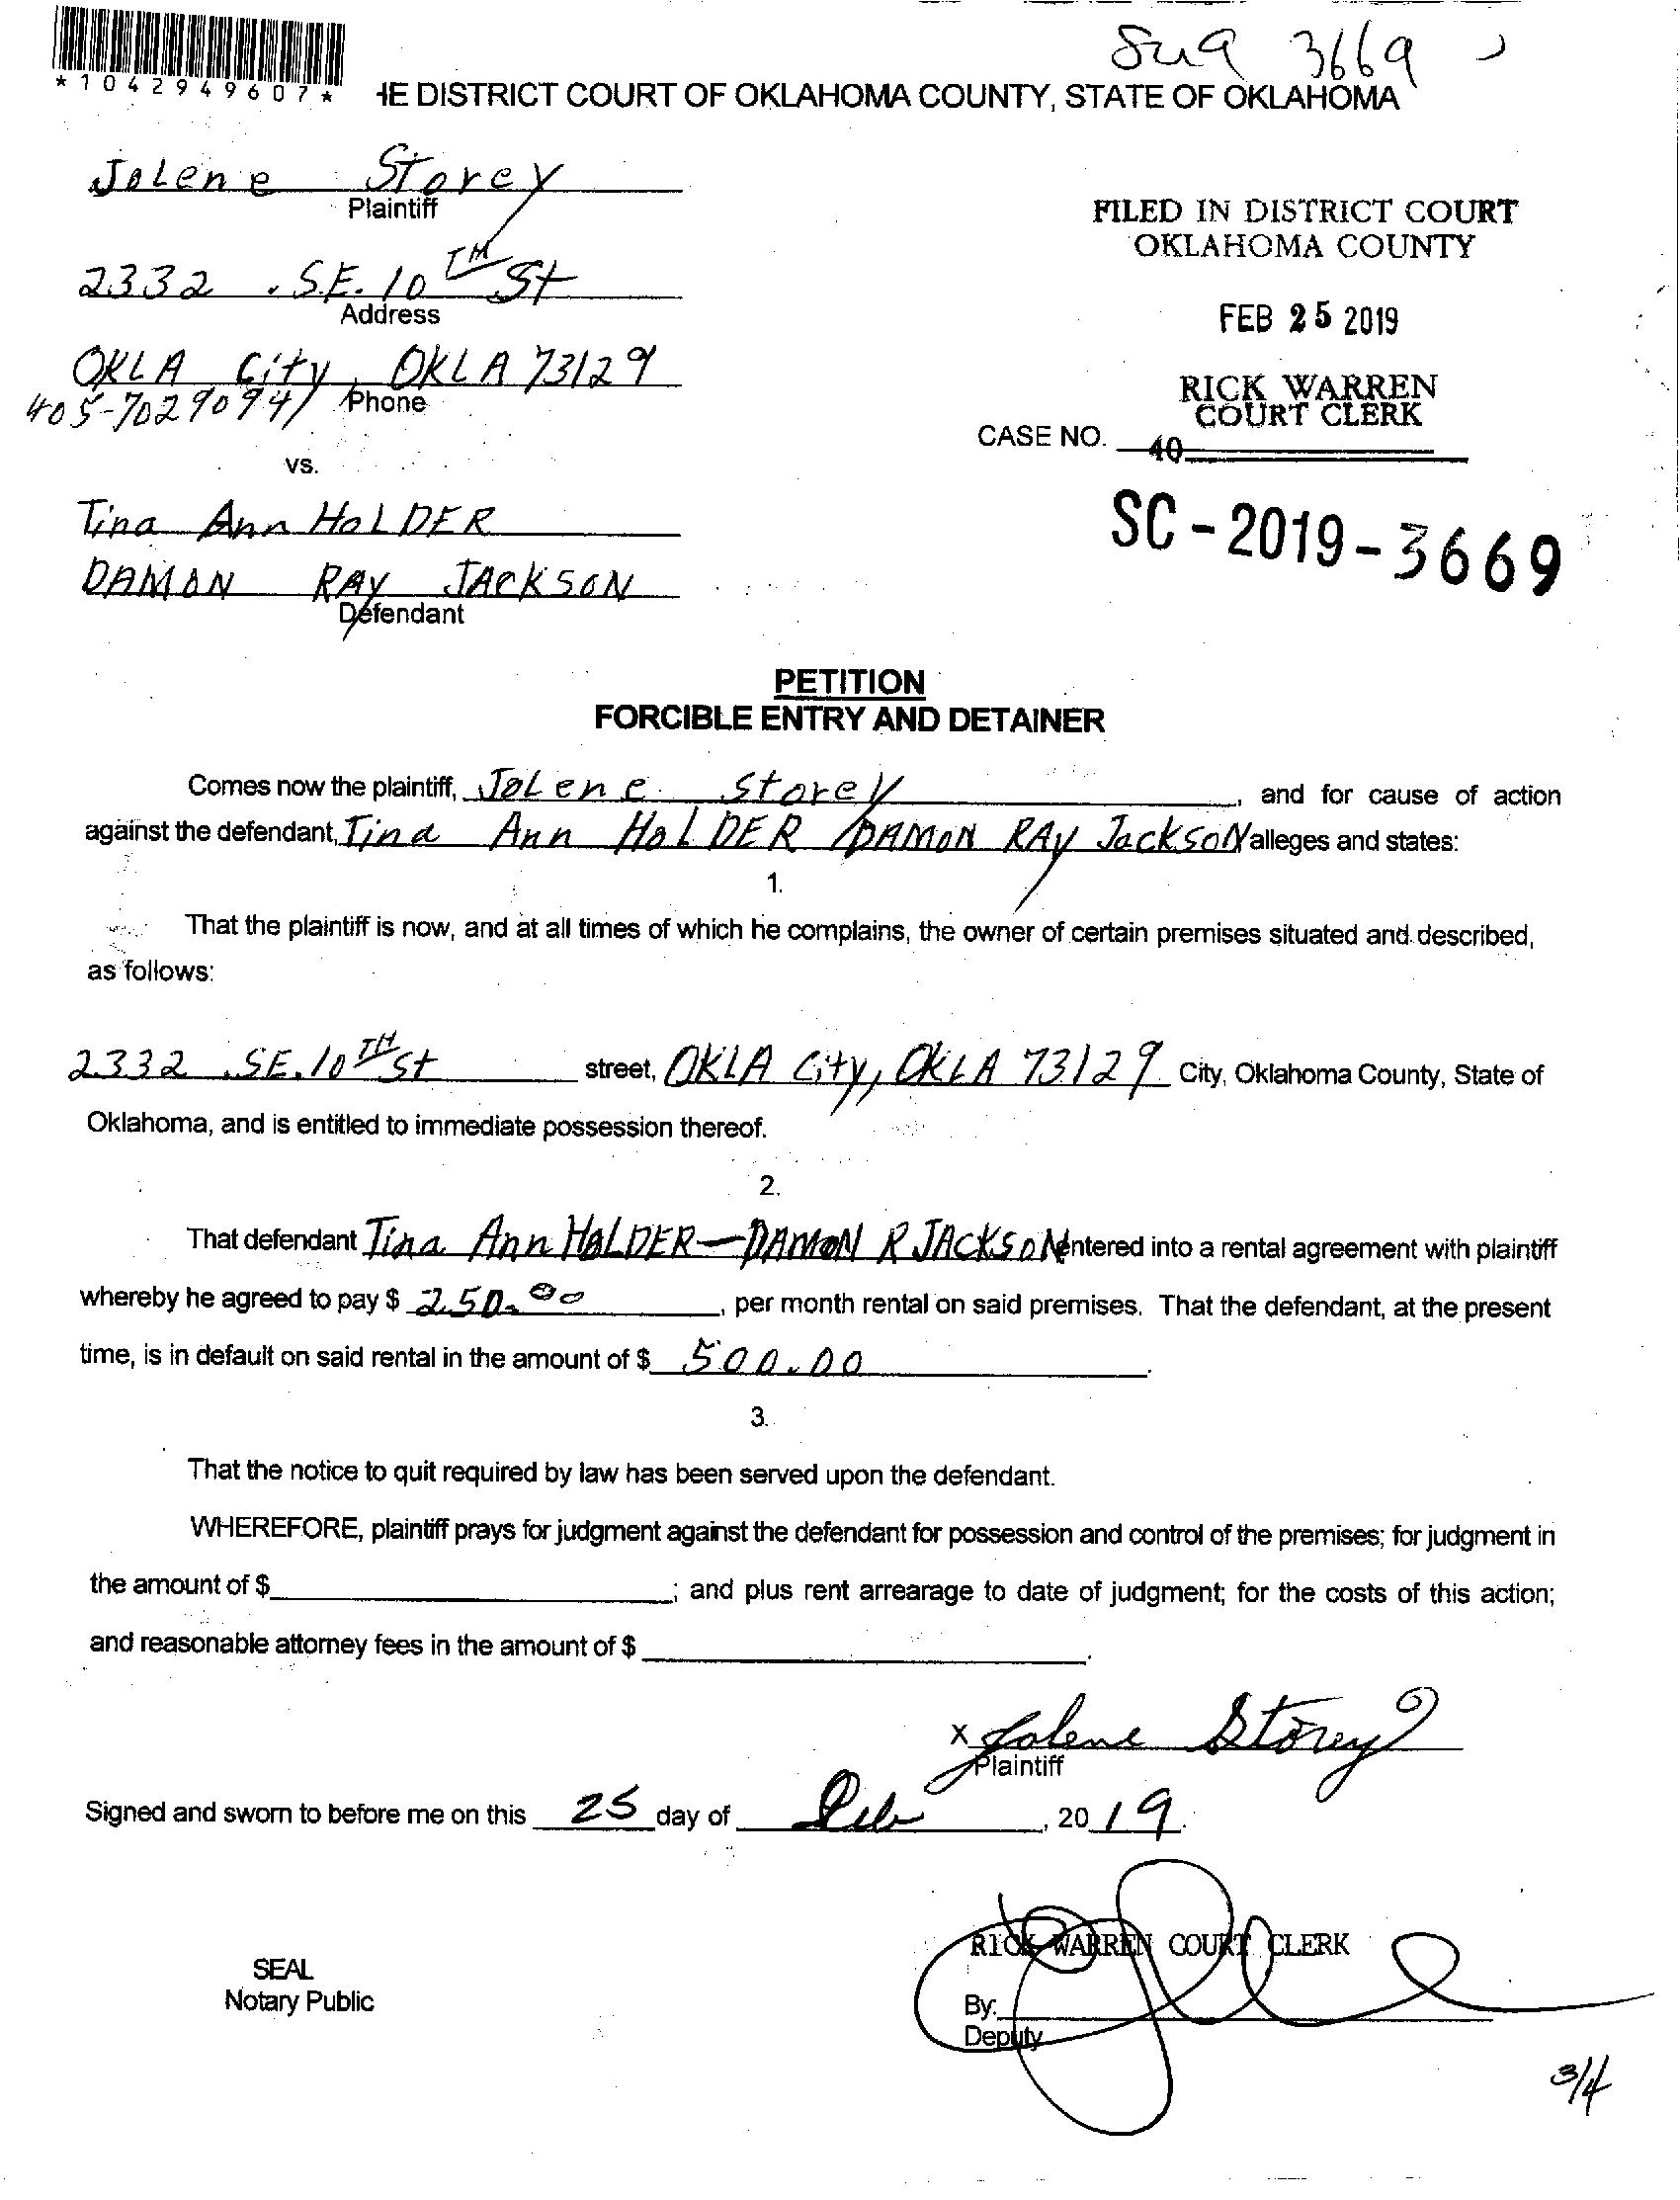 3669
*1042949607*
HE DISTRICT COURT OF OKLAHOMA COUNTY, STATE OF OKLAHOMA
Jolene Storey
Plaintiff
FILED IN DISTRICT COURT
OKLAHOMA COUNTY
2332 . S.E. 10TH St
Address
FEB 25 2019
OKLA City, OKLA 73129
405-7029094 Phone
RICK WARREN
COURT CLERK
CASE NO. 40
vs.
Tina Ann HOLDER
SC-2019-3669
DAMON RAY JACKSON
Defendant
PETITION
FORCIBLE ENTRY AND DETAINER
Comes now the plaintiff, JoLene Storey, and for cause of action
against the defendant, Tina Ann HoLDER / DAMON RAY JacksoN alleges and states:
1.
That the plaintiff is now, and at all times of which he complains, the owner of certain premises situated and described,
as follows:
2332 . SE. 10TH St street, OKLA City, OKLA 73129 City, Oklahoma County, State of
Oklahoma, and is entitled to immediate possession thereof.
2.
That defendant Tina Ann HOLDER—DAMON R JACKSON entered into a rental agreement with plaintiff
whereby he agreed to pay $ 250.00, per month rental on said premises. That the defendant, at the present
time, is in default on said rental in the amount of $ 500.00.
3.
That the notice to quit required by law has been served upon the defendant.
WHEREFORE, plaintiff prays for judgment against the defendant for possession and control of the premises; for judgment in
the amount of $ ; and plus rent arrearage to date of judgment; for the costs of this action;
and reasonable attorney fees in the amount of $ .
x Jolene Storey
Plaintiff
Signed and sworn to before me on this 25 day of Feb, 2019.
RICK WARREN COURT CLERK
SEAL
Notary Public
By:
Deputy
3/4